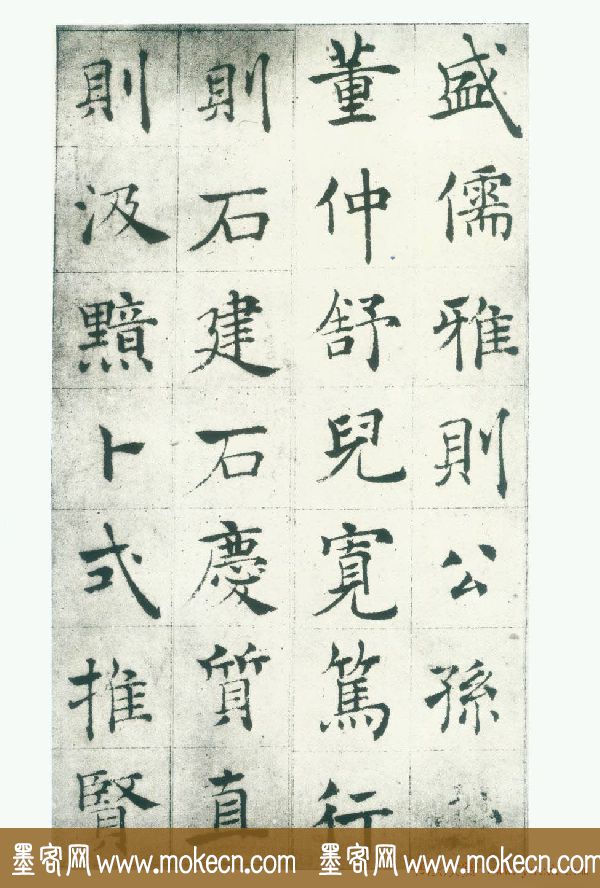 盛儒雅則公孫
董仲舒兒寬篤行
則石建石慶質直
則汲黯卜式推賢
墨客网 www.mokecn.com 墨客网 www.mokecn.com